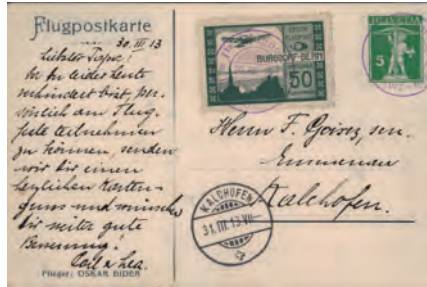 Flugpostkarte
30 III 13
Liebster Papa!
Da Du leider heute
verhindert bist, per-
sönlich am Flug-
feste teilnehmen
zu können, senden
wir Dir einen
herzlichen Karten-
gruss und wünschen
Dir weiter gute
Besserung!
Flieger: OSKAR BIDER
BURGDORF-BERN
50
HELVETIA
5
Herrn F.
Emmenau
Kalchofen.
KALCHOFEN
31. III. 13. VII